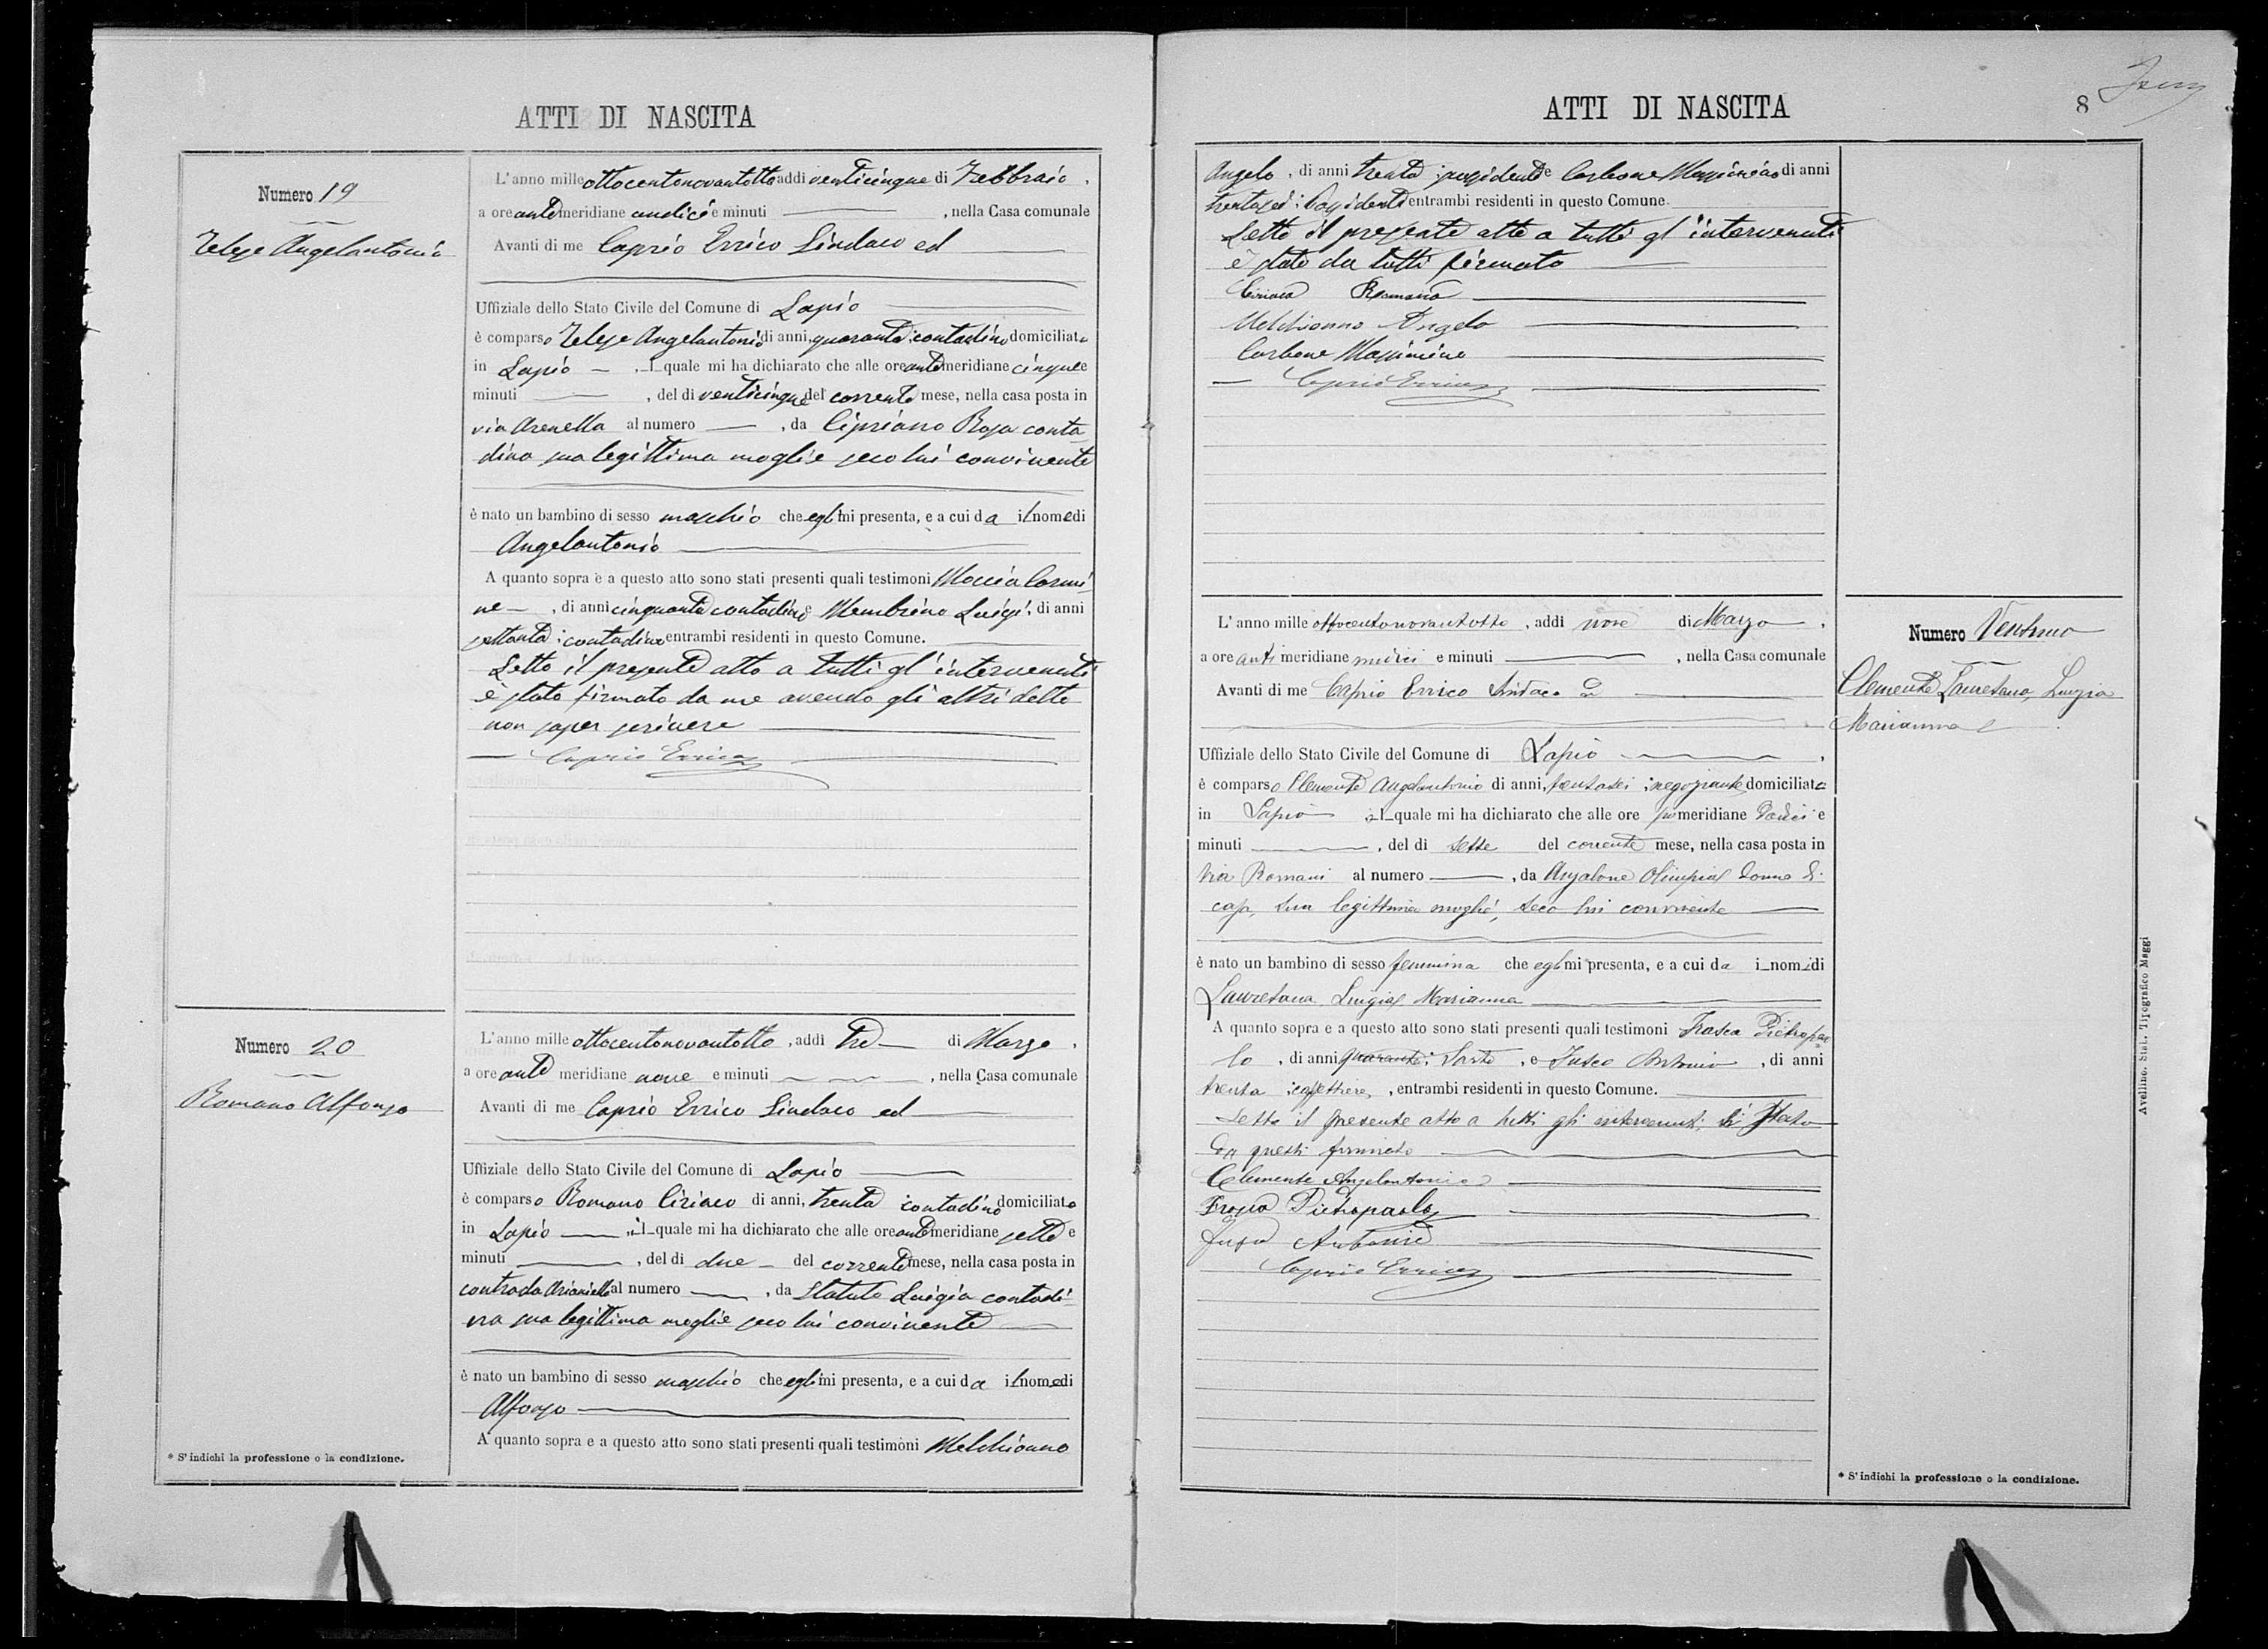 ATTI DI NASCITA
Numero 19
Telese Angelantonio
L'anno mille ottocentonovantotto addì venticinque di Febbraio,
a ore antimeridiane undici e minuti , nella Casa comunale
Avanti di me Caprio Errico Sindaco ed
Uffiziale dello Stato Civile del Comune di Lapio
è comparso Telese Angelantonio di anni, quaranta; contadino domiciliato
in Lapio , il quale mi ha dichiarato che alle ore antimeridiane cinque e
minuti , del dì venticinque del corrente mese, nella casa posta in
via Arenella al numero , da Cipriano Rosa conta-
dina sua legittima moglie seco lui convivente
è nato un bambino di sesso maschio che egli mi presenta, e a cui da il nome di
Angelantonio
A quanto sopra e a questo atto sono stati presenti quali testimoni Moccia Carmi-
ne , di anni cinquanta contadino e Membrino Luigi, di anni
settanta; contadino entrambi residenti in questo Comune.
Letto il presente atto a tutti gl'intervenuti
è stato firmato da me avendo gli altri detto
non saper scrivere
Caprio Errico
Numero 20
Romano Alfonso
L'anno mille ottocentonovantotto, addì tre di Marzo,
a ore ante meridiane nove e minuti , nella Casa comunale
Avanti di me Caprio Errico Sindaco ed
Uffiziale dello Stato Civile del Comune di Lapio
è comparso Romano Ciriaco di anni, trenta contadino domiciliato
in Lapio , il quale mi ha dichiarato che alle ore antemeridiane sette e
minuti , del dì due del corrente mese, nella casa posta in
contrada Arianiello al numero , da Statuto Luigia contadi-
na sua legittima moglie seco lui convivente
è nato un bambino di sesso maschio che egli mi presenta, e a cui da il nome di
Alfonso
A quanto sopra e a questo atto sono stati presenti quali testimoni Melchionno
* S'indichi la professione o la condizione.
ATTI DI NASCITA
8
Angelo, di anni trenta; possidente e Carbone Massimino di anni
trentasei; possidente entrambi residenti in questo Comune.
Letto il presente atto a tutti gl'intervenuti
è stato da tutti firmato
Ciriaco Romano
Melchionno Angelo
Carbone Massimino
Caprio Errico
Numero Ventuno
Clemente Lauretana, Luigia
Marianna
L'anno mille ottocentonovantotto, addì nove di Marzo,
a ore antimeridiane undici e minuti , nella Casa comunale
Avanti di me Caprio Errico Sindaco ed
Uffiziale dello Stato Civile del Comune di Lapio,
è comparso Clemente Angelantonio di anni, trentasei; negoziante domiciliato
in Lapio il quale mi ha dichiarato che alle ore pomeridiane dodici e
minuti , del dì sette del corrente mese, nella casa posta in
Via Romani al numero , da Anzalone Olimpia donna di
casa, sua legittima moglie, seco lui convivente
è nato un bambino di sesso femmina che egli mi presenta, e a cui da i nomi di
Lauretana Luigia Marianna
A quanto sopra e a questo atto sono stati presenti quali testimoni Frasca Pietropao-
lo, di anni quaranta; Sarto, e Fusco Antonio, di anni
trenta; caffettiere, entrambi residenti in questo Comune.
Letto il presente atto a tutti gli intervenuti, è stato
da questi firmato
Clemente Angelantonio
Frasca Pietropaolo
Fusco Antonio
Caprio Errico
* S'indichi la professione o la condizione.
Avellino. Stab. Tipografico Maggi